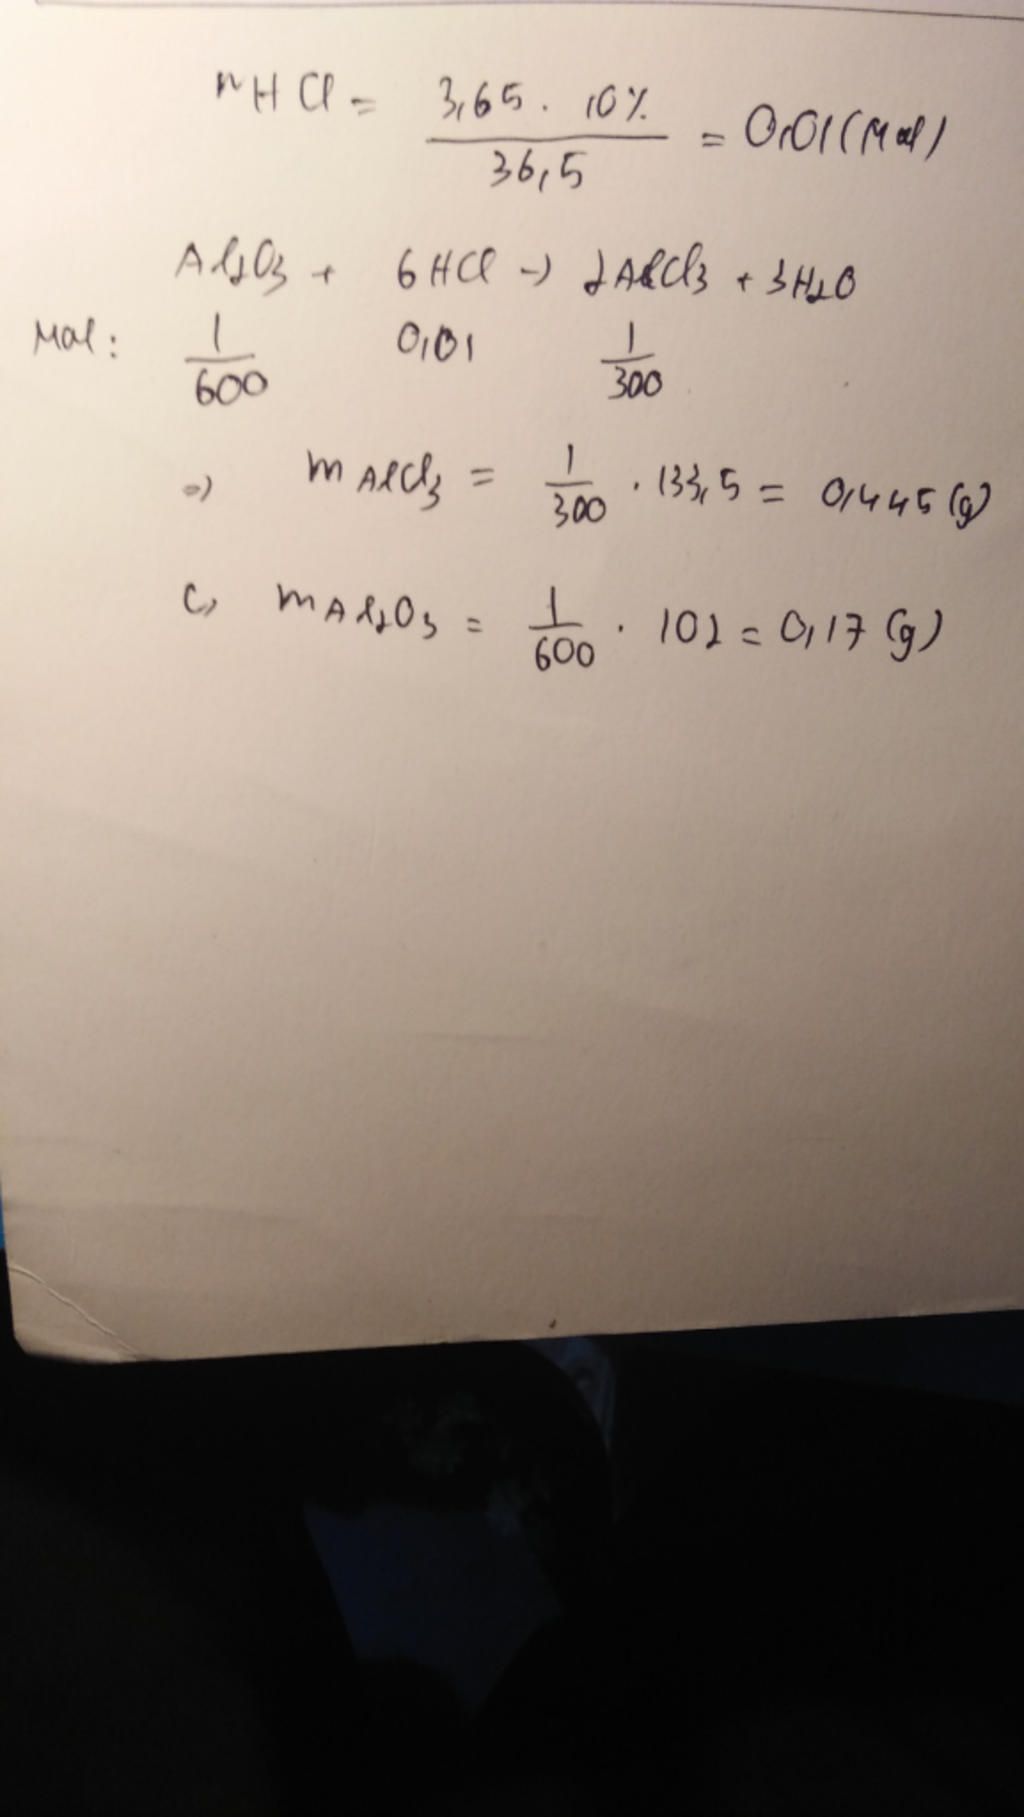 nHCl = 3,65 . 10% / 36,5 = 0,01 (Mol)
Al2O3 + 6HCl -> 2AlCl3 + 3H2O
Mol: 1/600 0,01 1/300
=> mAlCl3 = 1/300 . 133,5 = 0,445 (g)
c, mAl2O3 = 1/600 . 102 = 0,17 (g)